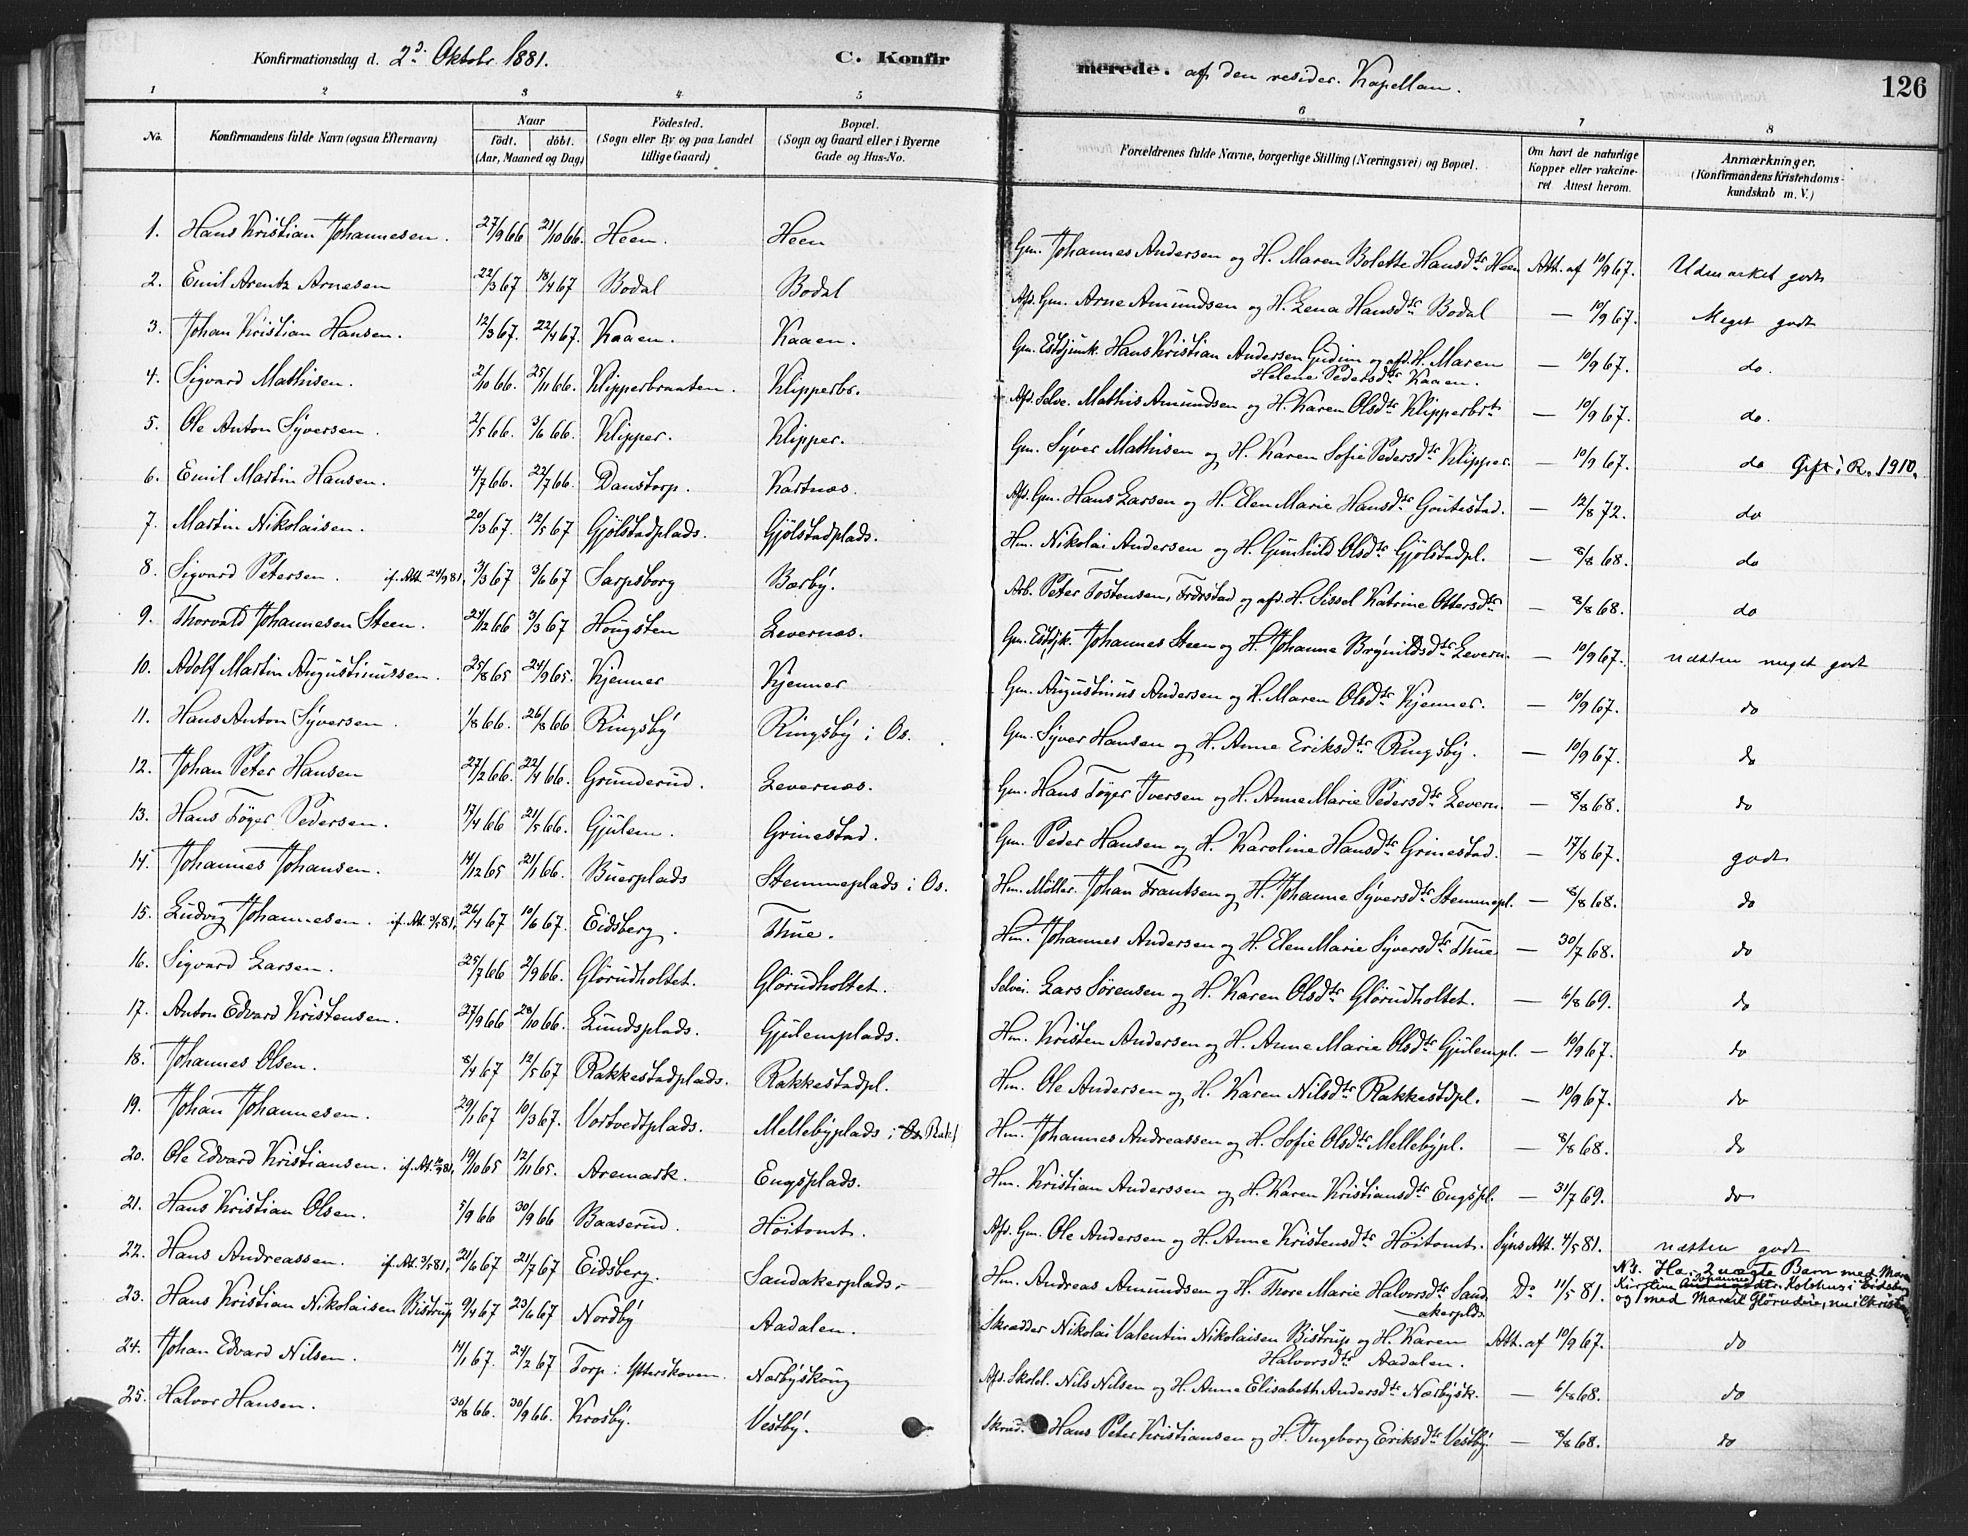 Konfirmationsdag d. 2d Oktobr 1881. C. Konfir merede. af den resider. Kapellan. 126
1 2 3 4 5 6 7 8
No. Konfirmandens fulde Navn (ogsaa Efternavn) Naar født. døbt. (Aar, Maaned og Dag) Fødested. (Sogn eller By og paa Landet tillige Gaard) Bopæl. (Sogn og Gaard eller i Byerne Gade og Hus-No. Forældrenes fulde Navne, borgerlige Stilling (Næringsvei) og Bopæl. Om havt de naturlige Kopper eller vakcineret Attest herom. Anmærkninger. (Konfirmandens Kristendomskundskab m. V.)
1. Hans Kristian Johannesen. 27/9 66 21/10 66. Heen. Heen Gm. Johannes Andersen og H. Maren Bolette Hansdtr Heen Att. af 10/9 67. Udmærket godt
2. Emil Arentz Arnesen 22/3 67 18/4 67 Bodal Bodal Afd. Gm. Arne Amundsen og H. Lena Hansdtr Bodal — 10/9 67. Meget godt
3. Johan Kristian Hansen. 12/3 67. 22/4 67. Kaaen. Kaaen. Gm. Estdjunk. Hans Kristian Andersen Gudim og afd. H. Maren Helene Pedersdtr Kaaen. — 10/9 67. do.
4. Sigvard Mathisen. 2/10 66. 25/11 66. Klipperbraaten. Klipperbr. Afd. Selve. Mathis Amundsen og H. Karen Olsdtr Klipperbrt — 10/9 67. do.
5. Ole Anton Syversen. 2/5 66. 3/6 66. Klipper. Klipper. Gm. Syver Mathisen og H. Karen Sofie Pedersdtr Klipper. — 10/9 67. do Gift i R. 1910.
6. Emil Martin Hansen. 4/7 66. 22/7 66. Danstorp. Kartnæs. Afd. Gm. Hans Larsen og H. Elen Marie Hansdtr Goutestad. — 12/8 72. do
7. Martin Nikolaisen. 20/3 67. 12/5 67 Gjølstadplads. Gjølstadplads. Hm. Nikolai Andersen og H. Gunhild Olsdtr Gjølstadpl. — 8/8 68. do
8. Sigvard Petersen. if. Att. 24/9 81. 31/3 67 3/6 67 Sarpsborg Bærby. Arb. Peter Tostensen, Frdrstad og afd. H. Sissel Katrine Ottersdtr — 8/8 68. do
9. Thorvald Johannesen Steen. 24/12 66 3/3 67 Hougsten Levernæs. Gm. Estdjk. Johannes Steen og H. Johanne Brynildsdtr Levern. — 10/9 67. næsten meget godt
10. Adolf Martin Augustinussen. 25/8 65 24/9 65. Kjenner Kjenner Gm. Augustinus Andersen og H. Maren Olsdtr Kjenner. — 10/9 67. do
11. Hans Anton Syversen. 1/8 66. 26/8 66 Ringsby Ringsby i Os. Gm. Syver Hansen og H. Anne Eriksdtr Ringsby. — 10/9 67. do
12. Johan Peter Hansen 27/2 66. 22/4 66. Grunderud. Levernæs. Gm. Hans Tøger Iversen og H. Anne Marie Pedersdtr Levern — 8/8 68. do
13. Hans Tøger Pedersen. 17/4 66 21/5 66. Gjulem. Grinestad. Gm. Peder Hansen og H. Karoline Hansdtr Grinestad. — 17/8 67. godt
14. Johannes Johansen. 14/12 65 21/1 66. Buerplads Stemmeplads i Os. Hm. Møller. Johan Frantsen og H. Johanne Syversdtr Stemmepl. — 8/8 68. do
15. Ludvig Johannesen. if. Att. 3/5 81. 26/4 67 10/6 67. Eidsberg. Thue. Hm. Johannes Andersen og H. Elen Marie Syversdtr Thue — 30/7 68. do
16. Sigvard Larsen. 25/7 66 2/9 66. Glørudholtet. Glørudholtet. Selvei. Lars Sørensen og H. Karen Olsdtr Glørudholtet. — 6/8 69. do
17. Anton Edvard Kristensen. 27/9 66 28/10 66. Lundsplads. Gjulemplads. Hm. Kristen Andersen og H. Anne Marie Olsdtr Gjulempl. — 10/9 67. do
18. Johannes Olsen. 8/4 67 12/5 67 Rakkestadplads. Rakkestadpl. Hm. Ole Andersen og H. Karen Nilsdtr Rakkestdpl. — 10/9 67. do
19. Johan Johannesen. 29/1 67 10/3 67. Vortvedtplads. Mellebyplads i Os Rakk Hm. Johannes Andreassen og H. Sofie Olsdtr Mellebypl. — 8/8 68. do
20. Ole Edvard Kristiansen. if. At. 81. 19/10 65 12/11 65. Aremark. Engsplads. Hm. Kristian Anderssen og H. Karen Kristiansdtr Engspl. — 31/7 69. do
21. Hans Kristian Olsen. 5/9 66 30/9 66 Baaserud. Høitomt. Afd. Gm. Ole Andersen og H. Anne Kristensdtr Høitomt. Syns Att. 4/5 81. næsten godt
22. Hans Andreassen. if. At. 3/5 81. 21/6 67 21/7 67 Eidsberg. Sandakerplads. Hm. Andreas Amundsen og H. Thore Marie Halvorsdtr Sandakerplds. Do 11/5 81. NB. Har 2 uægte Barn med Maren Kirstine Johannesdtr. Kolshus i Eidsberg og 1 med Glørudeie, nu i Kristia
23. Hans Kristian Nikolaisen Bistrup 9/4 67 23/6 67 Nordby Aadalen. Skrædder Nikolai Valentin Nikolaisen Bistrup og H. Karen Halvorsdtr Aadalen. Att. af 10/9 67. do
24. Johan Edvard Nilsen. 14/1 67. 24/2 67 Torp i Ytterskoven Nærbyskoug Afd. Skolel. Nils Nilsen og H. Anne Elisabeth Andersdtr Nærbysk. — 6/8 68. do
25. Halvor Hansen. 30/8 66. 30/9 66. Krosby. Vestby. Skræd. Hans Peter Kristiansen og H. Ingeborg Eriksdtr Vestby — 8/8 68. do